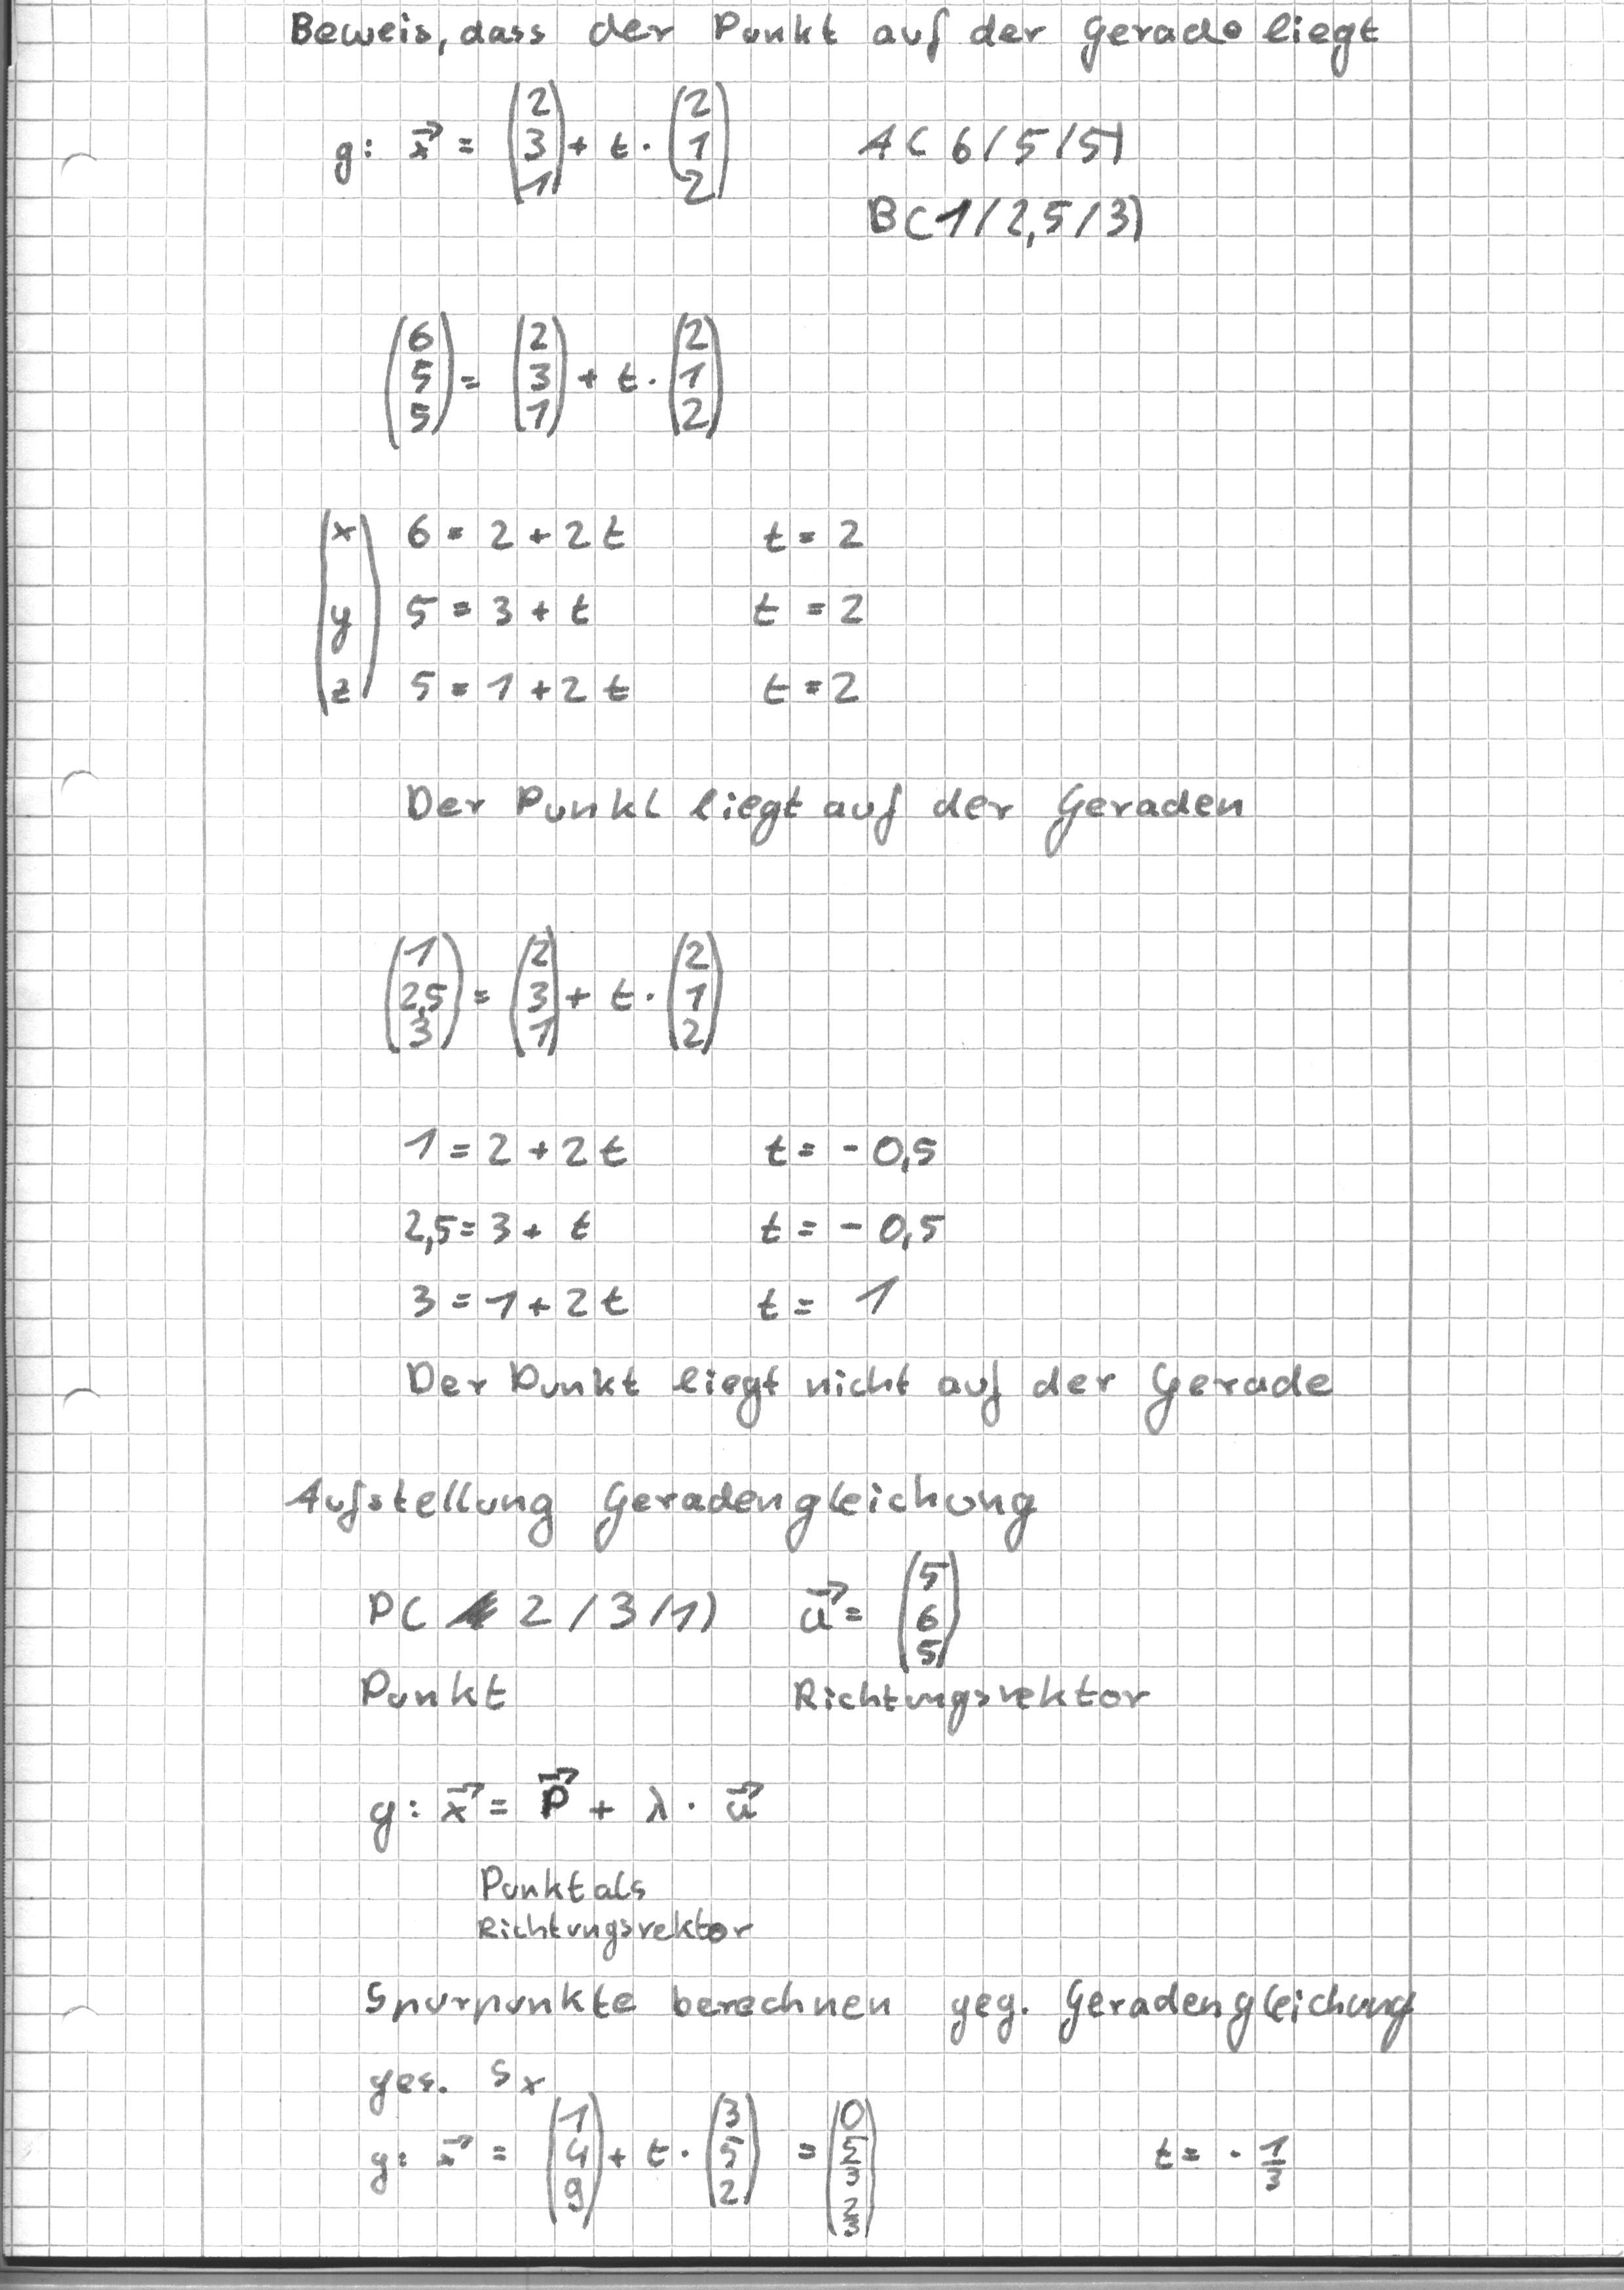 Beweis, dass der Punkt auf der Gerade liegt
g: x⃗ = (2 3 1) + t · (2 1 2) A(6/5/5)
B(1/2,5/3)
(6 5 5) = (2 3 1) + t · (2 1 2)
x 6 = 2 + 2t t = 2
y 5 = 3 + t t = 2
z 5 = 1 + 2t t = 2
Der Punkt liegt auf der Geraden
(1 2,5 3) = (2 3 1) + t · (2 1 2)
1 = 2 + 2t t = -0,5
2,5 = 3 + t t = -0,5
3 = 1 + 2t t = 1
Der Punkt liegt nicht auf der Gerade
Aufstellung Geradengleichung
P( 2/3/1) u⃗ = (5 6 5)
Punkt Richtungsvektor
g: x⃗ = P⃗ + λ · u⃗
Punkt als
Richtungsvektor
Spurpunkte berechnen geg. Geradengleichung
ges. Sx
g: x⃗ = (1 4 9) + t · (3 5 2) = (0 5/3 2/3) t = -1/3